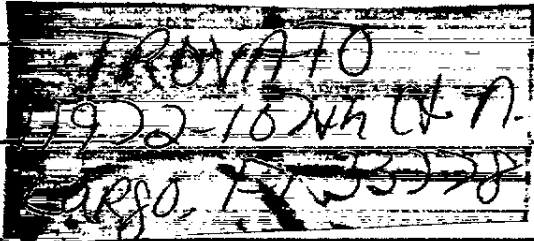 TROVATO
7922-107th Ct N.
Largo, FL 33778